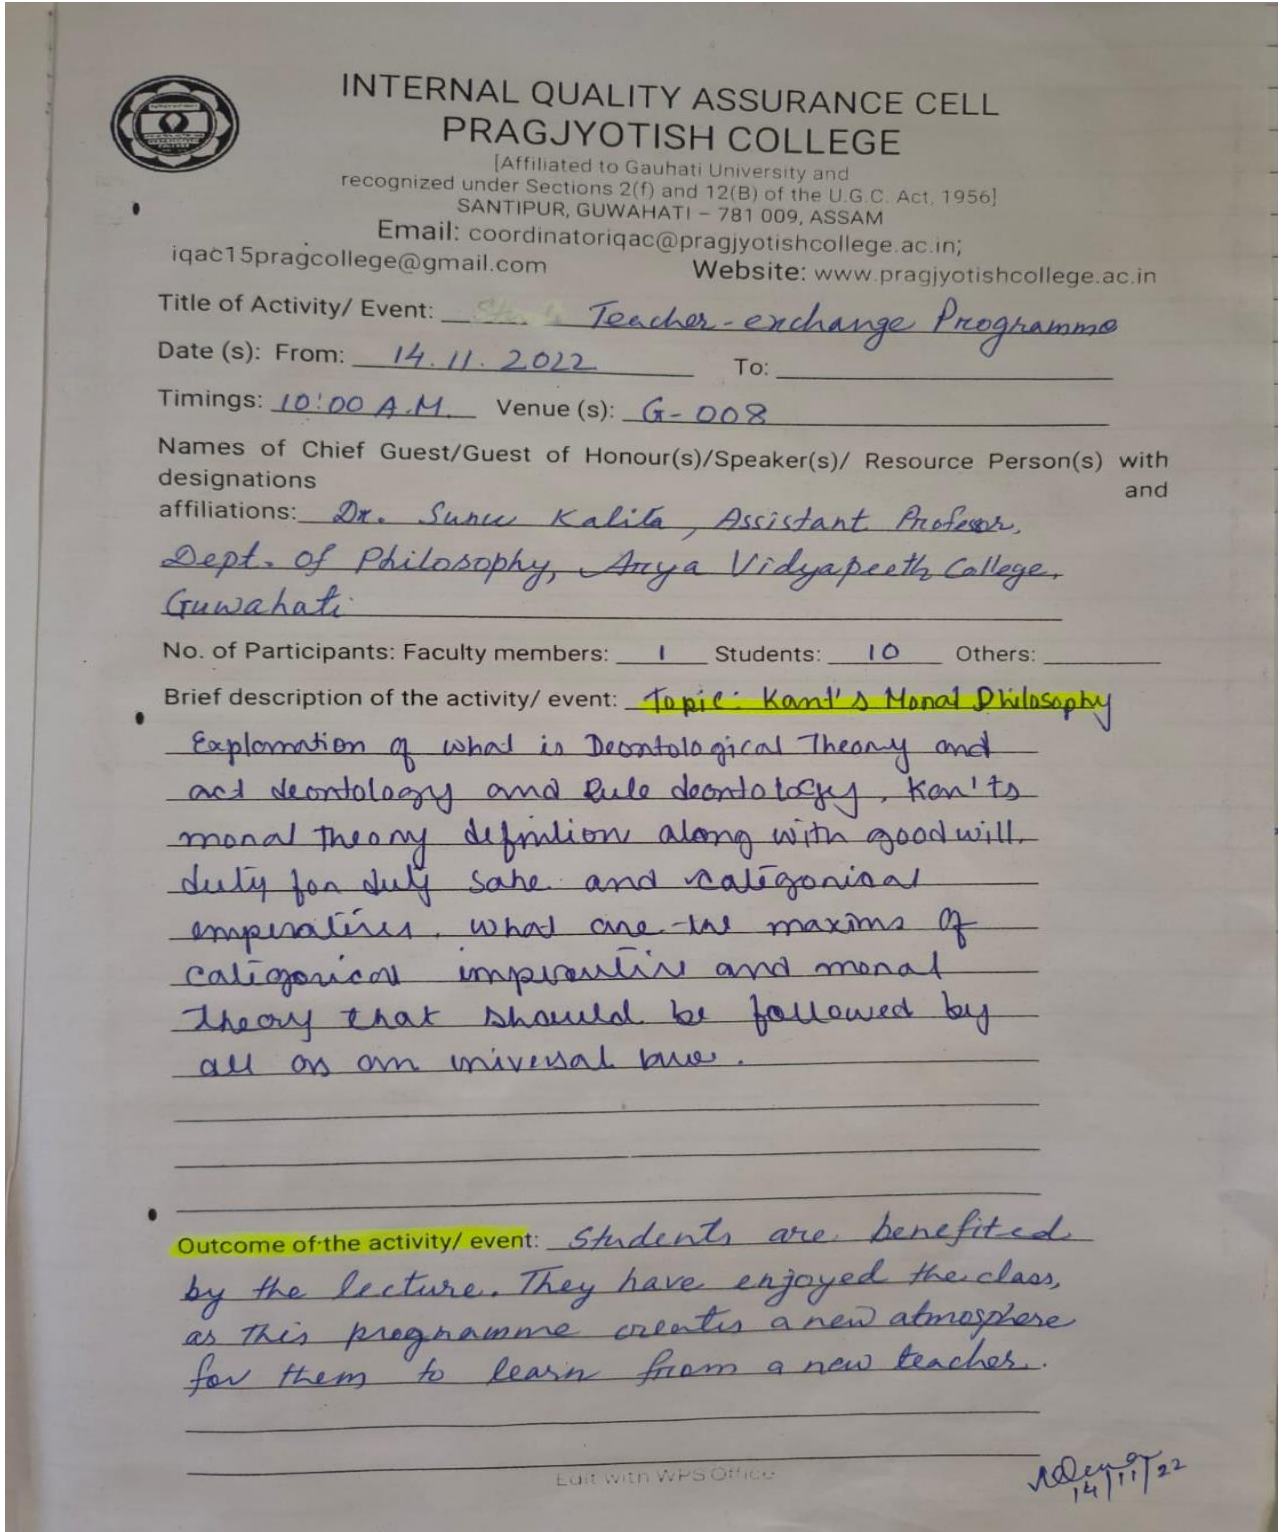 INTERNAL QUALITY ASSURANCE CELL
PRAGJYOTISH COLLEGE
[Affiliated to Gauhati University and
recognized under Sections 2(f) and 12(B) of the U.G.C. Act, 1956]
SANTIPUR, GUWAHATI – 781 009, ASSAM
Email: coordinatoriqac@pragjyotishcollege.ac.in;
iqac15pragcollege@gmail.com Website: www.pragjyotishcollege.ac.in
Title of Activity/ Event: Teacher-exchange Programme
Date (s): From: 14.11.2022 To:
Timings: 10:00 A.M. Venue (s): G-008
Names of Chief Guest/Guest of Honour(s)/Speaker(s)/ Resource Person(s) with
designations and
affiliations: Dr. Sunu Kalita, Assistant Professor,
Dept. of Philosophy, Arya Vidyapeeth College,
Guwahati
No. of Participants: Faculty members: 1 Students: 10 Others:
Brief description of the activity/ event: Topic: Kant's Moral Philosophy
Explanation of what is Deontological Theory and
act deontology and Rule deontology, Kan'ts
moral theory defintion along with good will.
duty for duty sake and categorical
emperatives. what are the maxims of
categorical imperative and moral
theory that should be followed by
all as an universal law.
Outcome of the activity/ event: Students are benefited
by the lecture. They have enjoyed the class,
as this programme creates a new atmosphere
for them to learn from a new teacher.
Edit with WPS Office
14/11/22